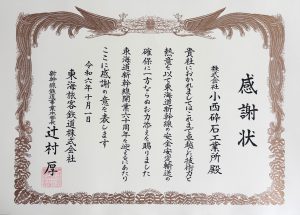 感謝状
株式会社 小西砕石工業所 殿
貴社におかれましてはこれまで卓越した技術力と
熱意を以て東海道新幹線の安全安定輸送の
確保に一方ならぬお力添えを賜りました
東海道新幹線開業六十周年を迎えるにあたり
ここに感謝の意を表します
令和六年十月一日
東海旅客鉄道株式会社
新幹線鉄道事業本部長 辻村 厚